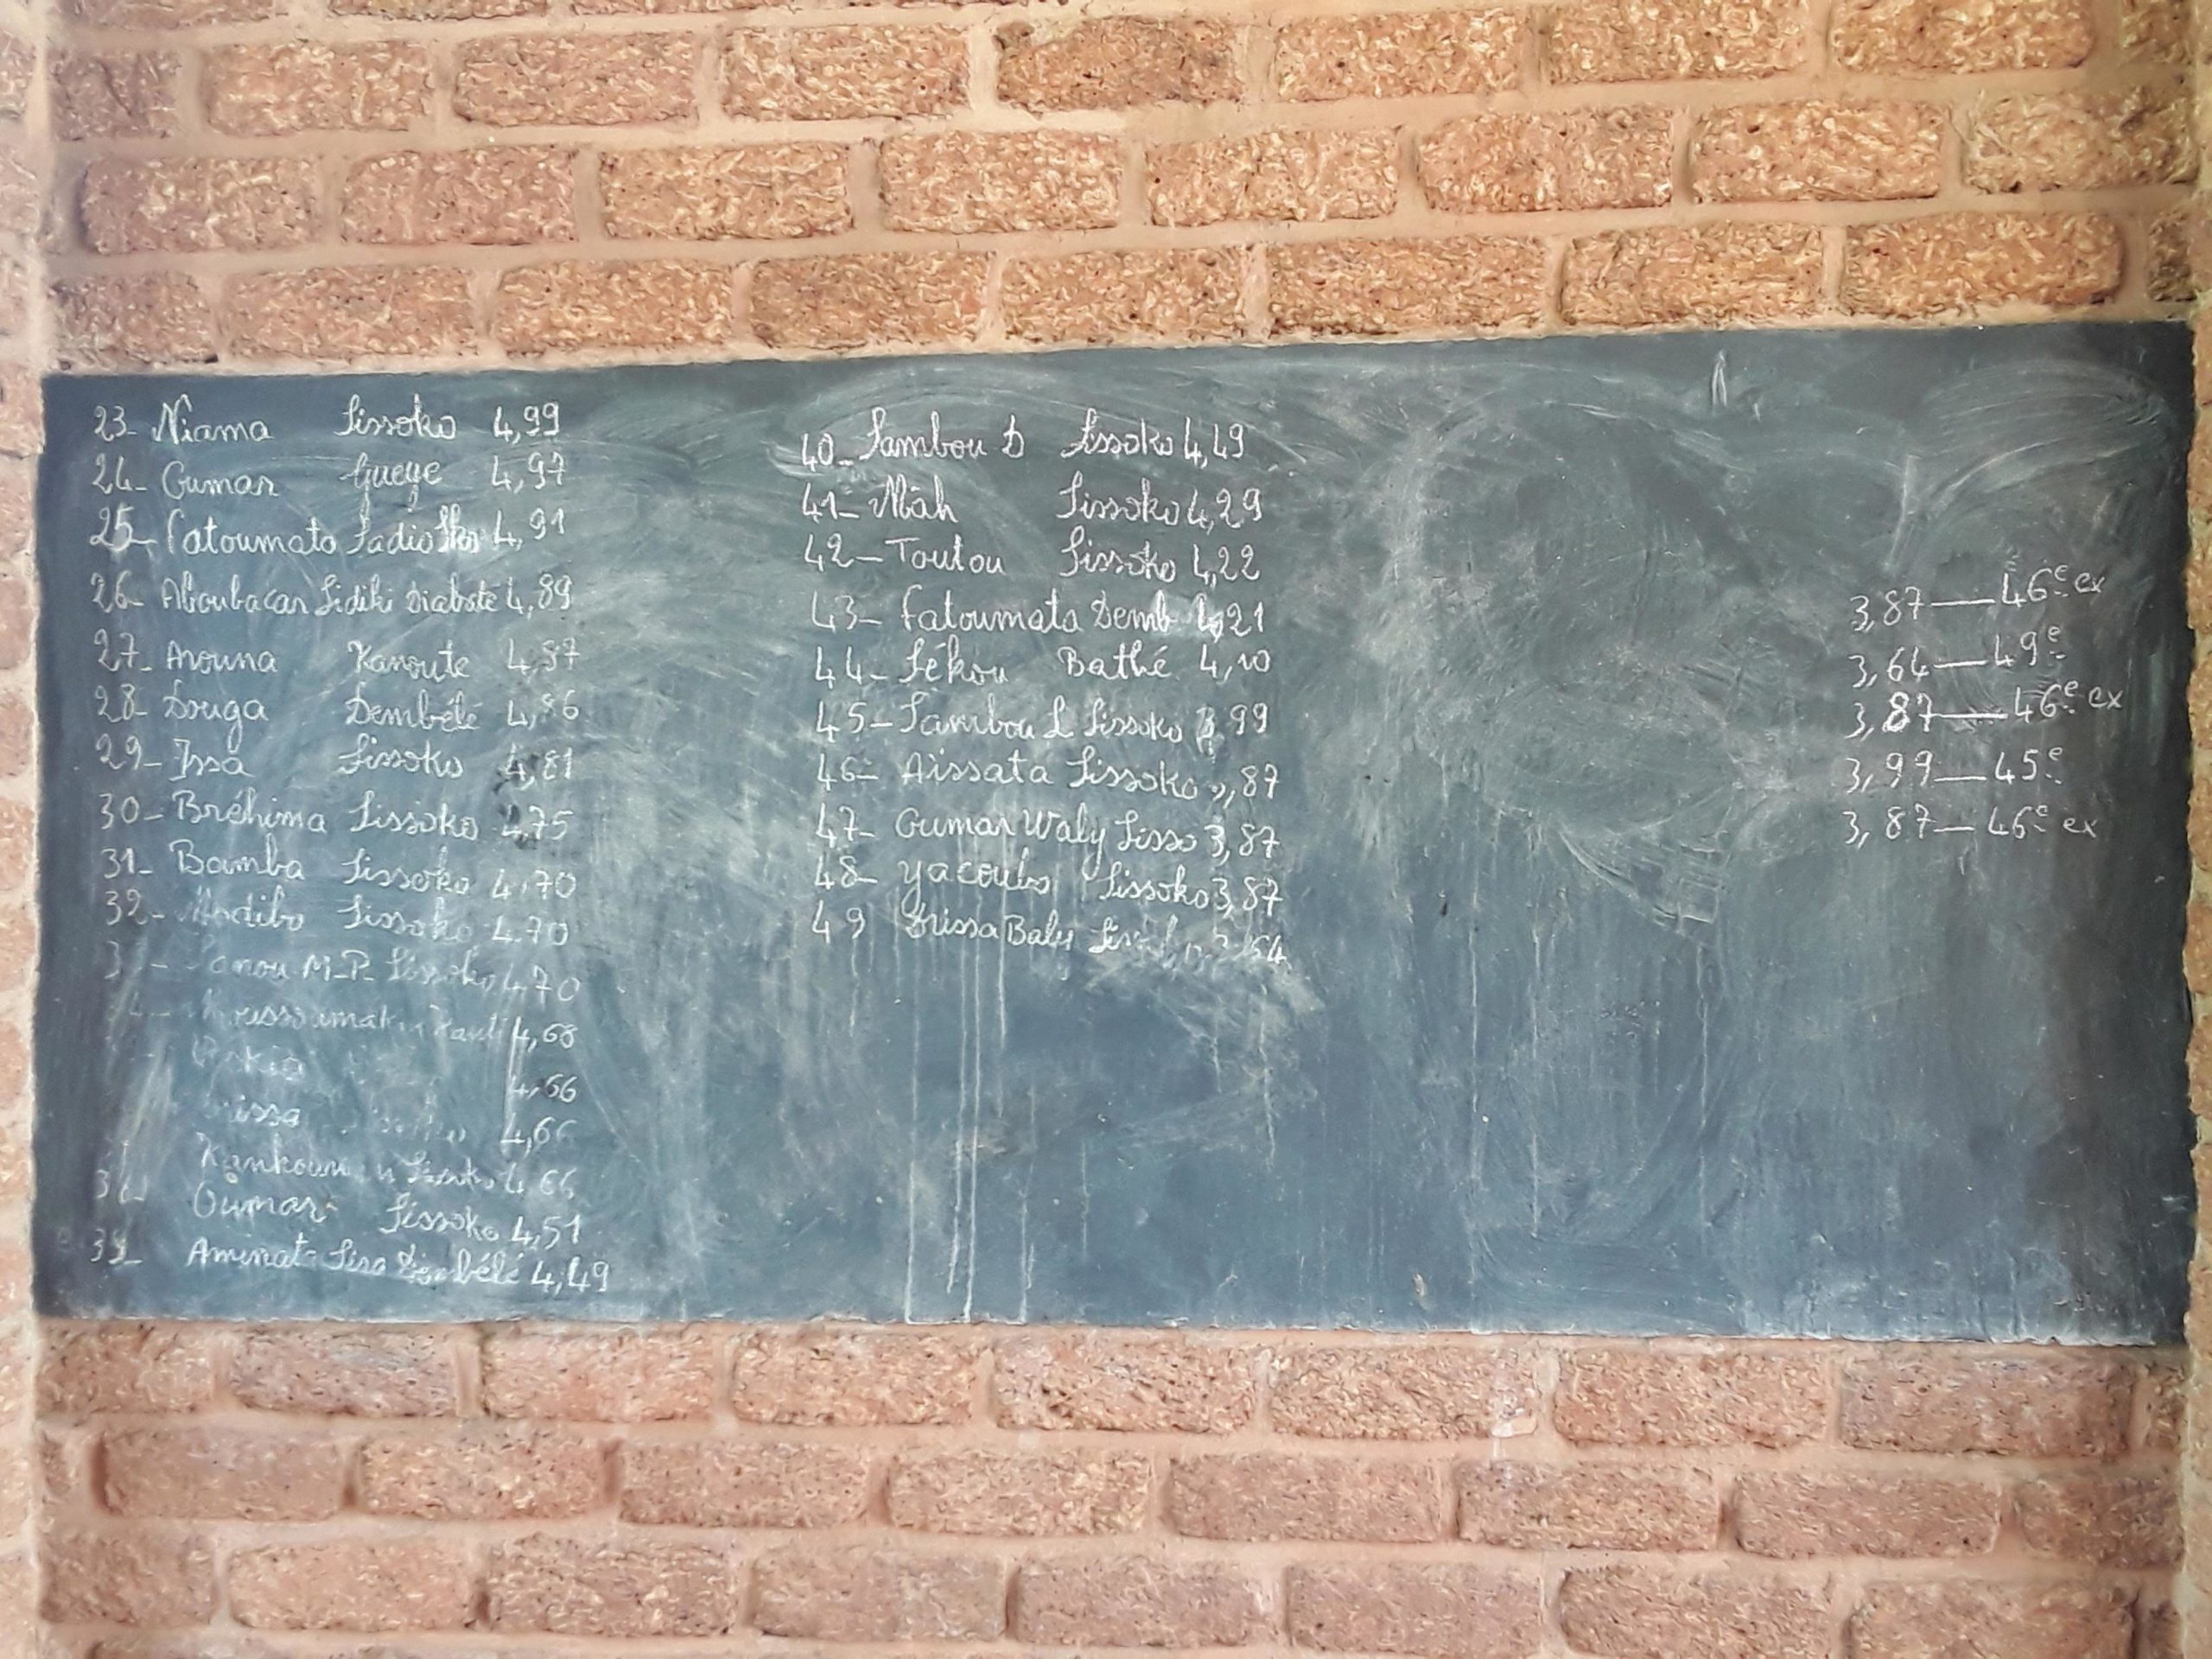 23- Niama Sissoko 4,99
24- Oumar Gueye 4,97
25- Fatoumata Sadio Sko 4,91
26- Aboubacar Sidiki Diabaté 4,89
27- Arouna Kanoute 4,87
28- Douga Dembélé 4,86
29- Issa Sissoko 4,81
30- Bréhima Sissoko 4,75
31- Bamba Sissoko 4,70
32- Modibo Sissoko 4,70
M-P Sissoko 4,70
4,68
4,66
4,66
Sissoko 4,66
Oumar Sissoko 4,51
39- Aminata Siss Dembélé 4,49
40- Sambou D Sissoko 4,49
41- Mâh Sissoko 4,29
42- Toutou Sissoko 4,22
43- Fatoumata Demb 4,21
44- Sékou Bathé 4,10
45- Sambou L Sissoko 3,99
46- Aissata Sissoko 3,87
47- Oumar Waly Sisso 3,87
48- Yacouba Sissoko 3,87
49 Drissa Baly 3,64
3,87 — 46e ex
3,64 — 49e
3,87 — 46e ex
3,99 — 45e
3,87 — 46e ex